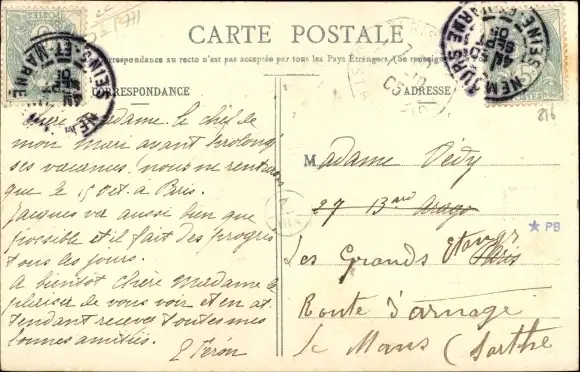 CARTE POSTALE
Correspondance au recto n'est pas acceptée par tous les Pays Étrangers. (Se renseigner
CORRESPONDANCE
ADRESSE
Chère Madame. le chef de
mon mari ayant prolongé
ses vacances nous ne rentrons
que le 15 oct. a Paris.
Jacques va aussi bien que
possible et il fait des progrès
tous les jours.
A bientôt chère Madame le
plaisir de vous voir et en at
tendant recevez toutes mes
bonnes amitiés.
E Feron
Madame Dédy
27 Bard Arago
Les Grands Etangs
Route d'arnage
Le Mans (Sarthe
NEMOURS
SEINE-ET-MARNE
SEINE-ET-MARNE
816
PB